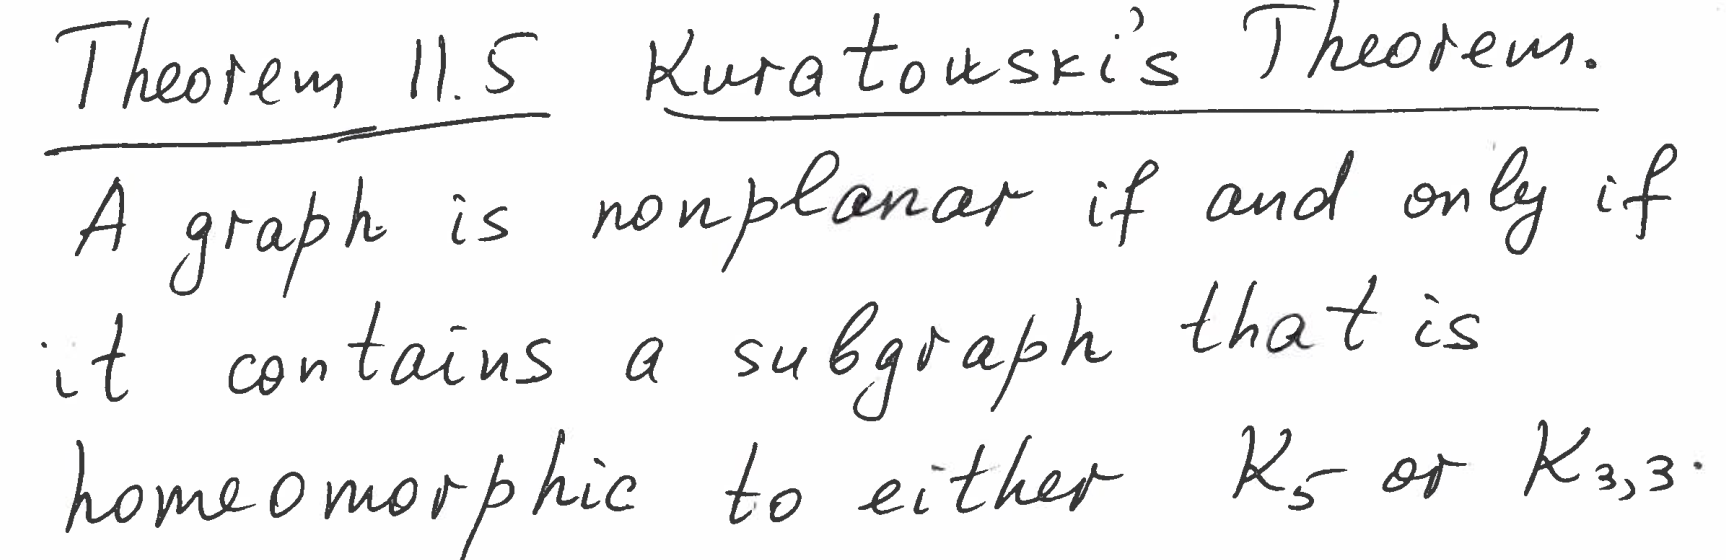 Theorem 11.5 Kuratowski's Theorem.
A graph is nonplanar if and only if
it contains a subgraph that is
homeomorphic to either K₅ or K₃,₃.